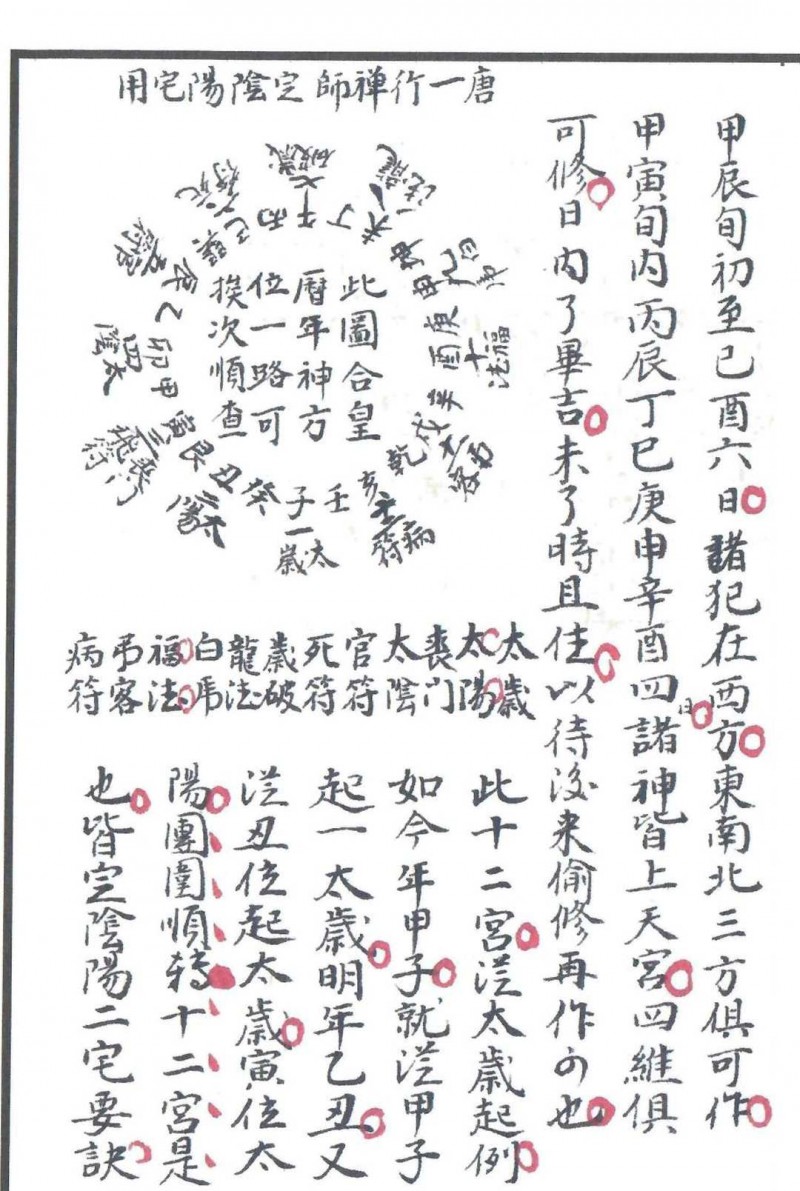 唐一行禅師定陰陽宅用
甲辰旬初至己酉六日諸犯在西方東南北三方俱可作
甲寅旬内丙辰丁巳庚申辛酉四日諸神皆上天宮四維俱
可修日内了畢吉未了時且住以待後来偷修再作可也
此圖合皇
曆年神方
位一路可
挨次順查
壬子一太歲
癸丑二太陽
艮寅三喪门飛符
甲卯四太陰
乙辰
巽巳
丙午七歲破
丁未八龍法
坤申九白虎
庚酉十福法
辛戌
乾亥病符
太歲
太陽
喪门
太陰
官符
死符
歲破
龍法
白虎
福法
弔客
病符
此十二宮從太歲起例
如今年甲子就從甲子
起一太歲明年乙丑又
從丑位起太歲寅位太
陽團圍順轉十二宮是
也皆定陰陽二宅要訣